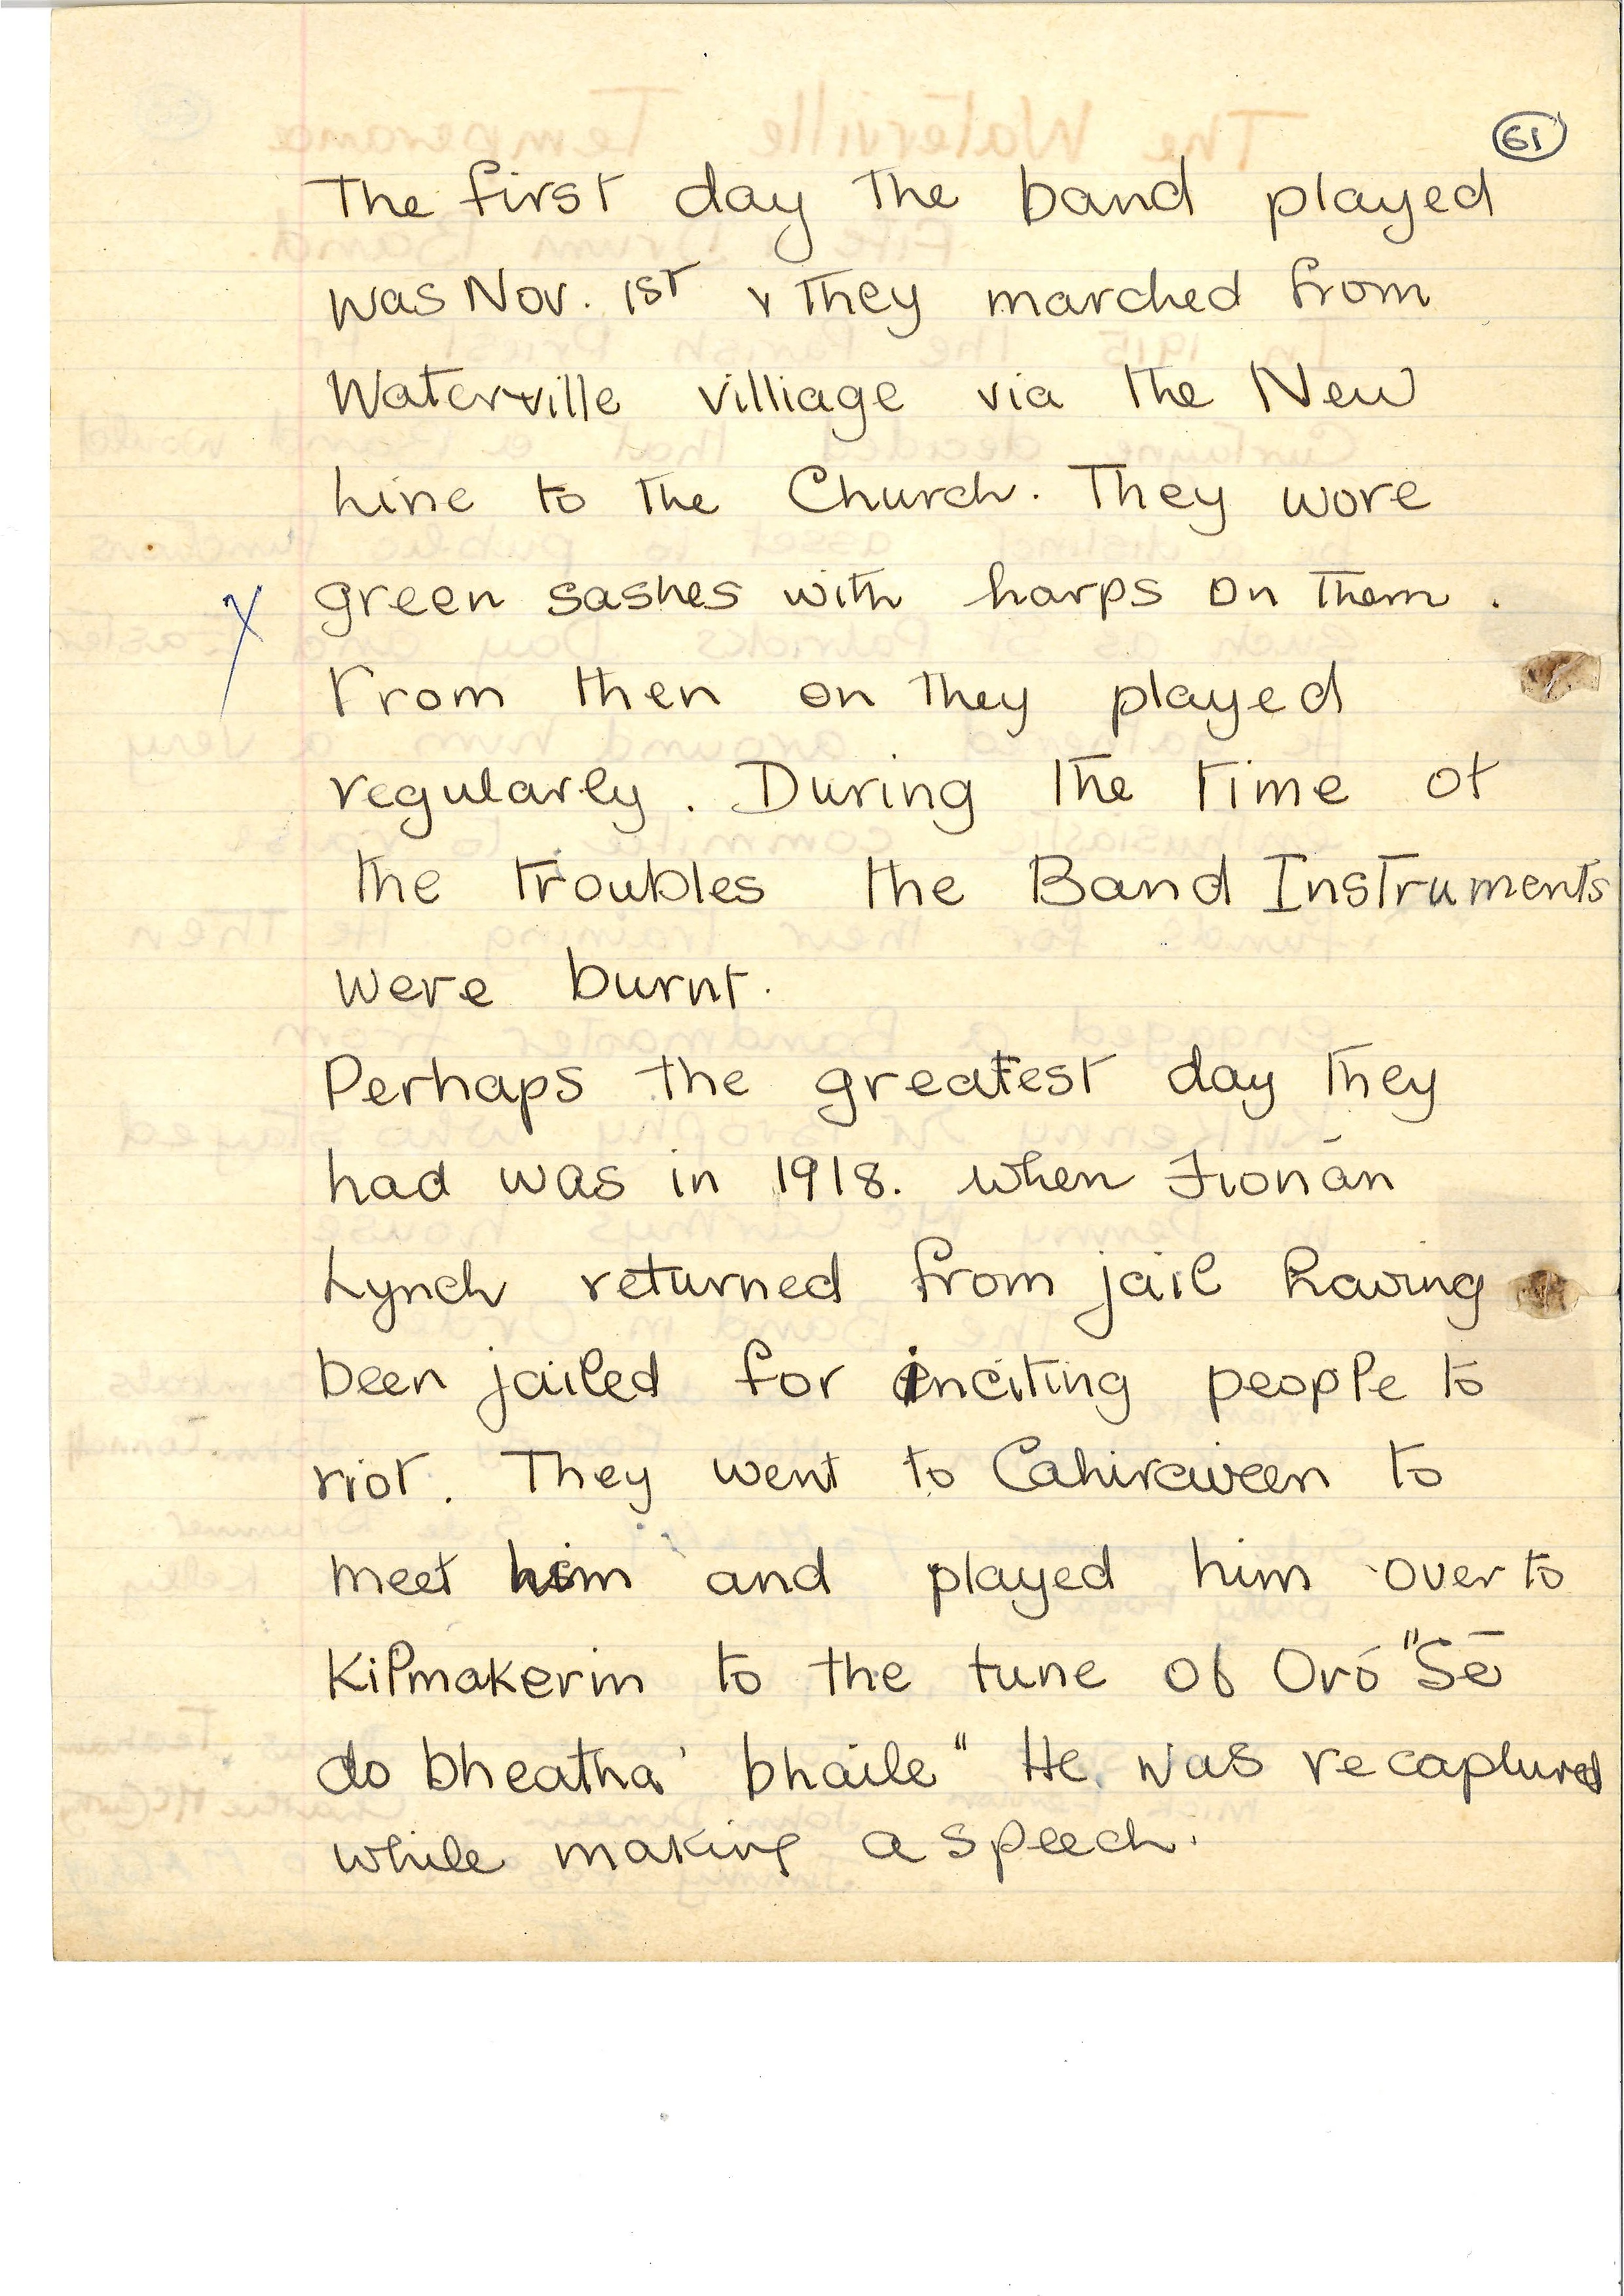 61
The first day the band played
was Nov. 1st & they marched from
Waterville villiage via the New
Line to the Church. They wore
X green sashes with harps on them.
From then on they played
regularly. During the time of
the troubles the Band Instruments
were burnt.
Perhaps the greatest day they
had was in 1918. when Fionán
Lynch returned from jail having
been jailed for inciting people to
riot. They went to Cahirciveen to
meet him and played him over to
Kilmakerin to the tune of Oró "Sé
do bheatha' bhaile" He was recaptured
while making a speech.